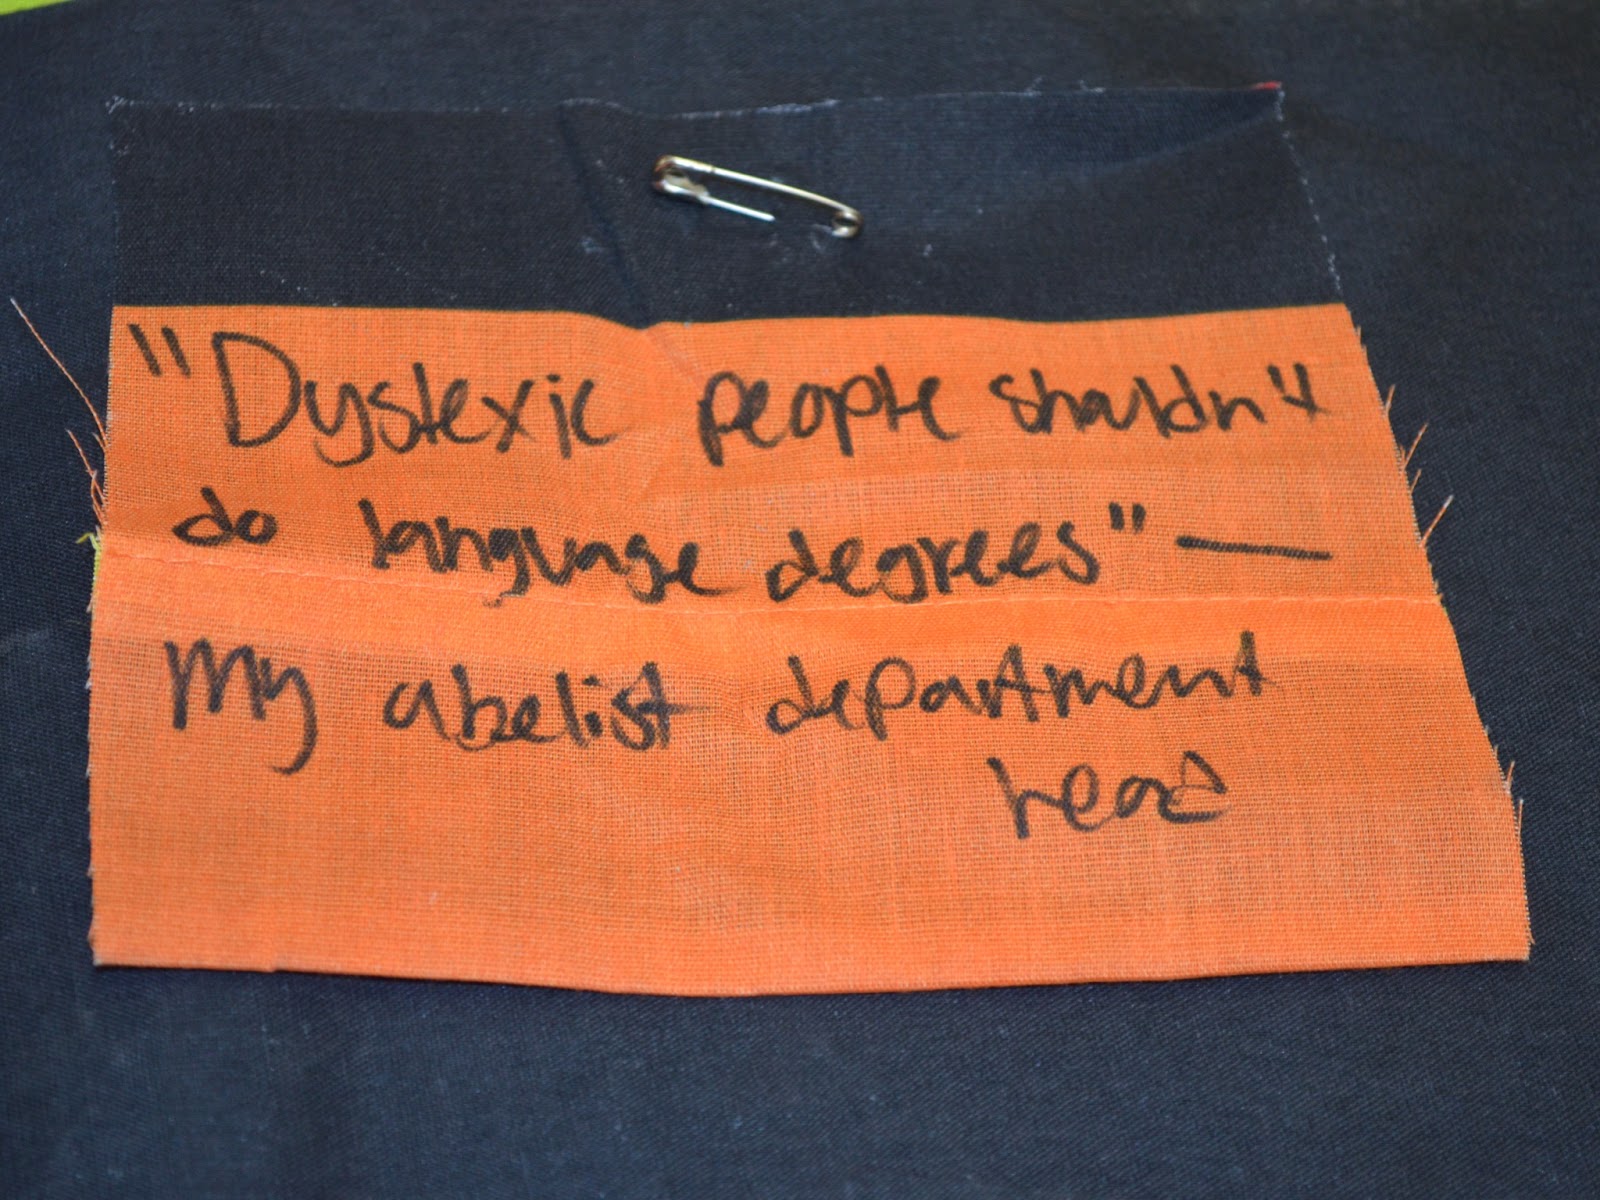 "Dyslexic people shouldn't
do language degrees" —
My abelist department
head